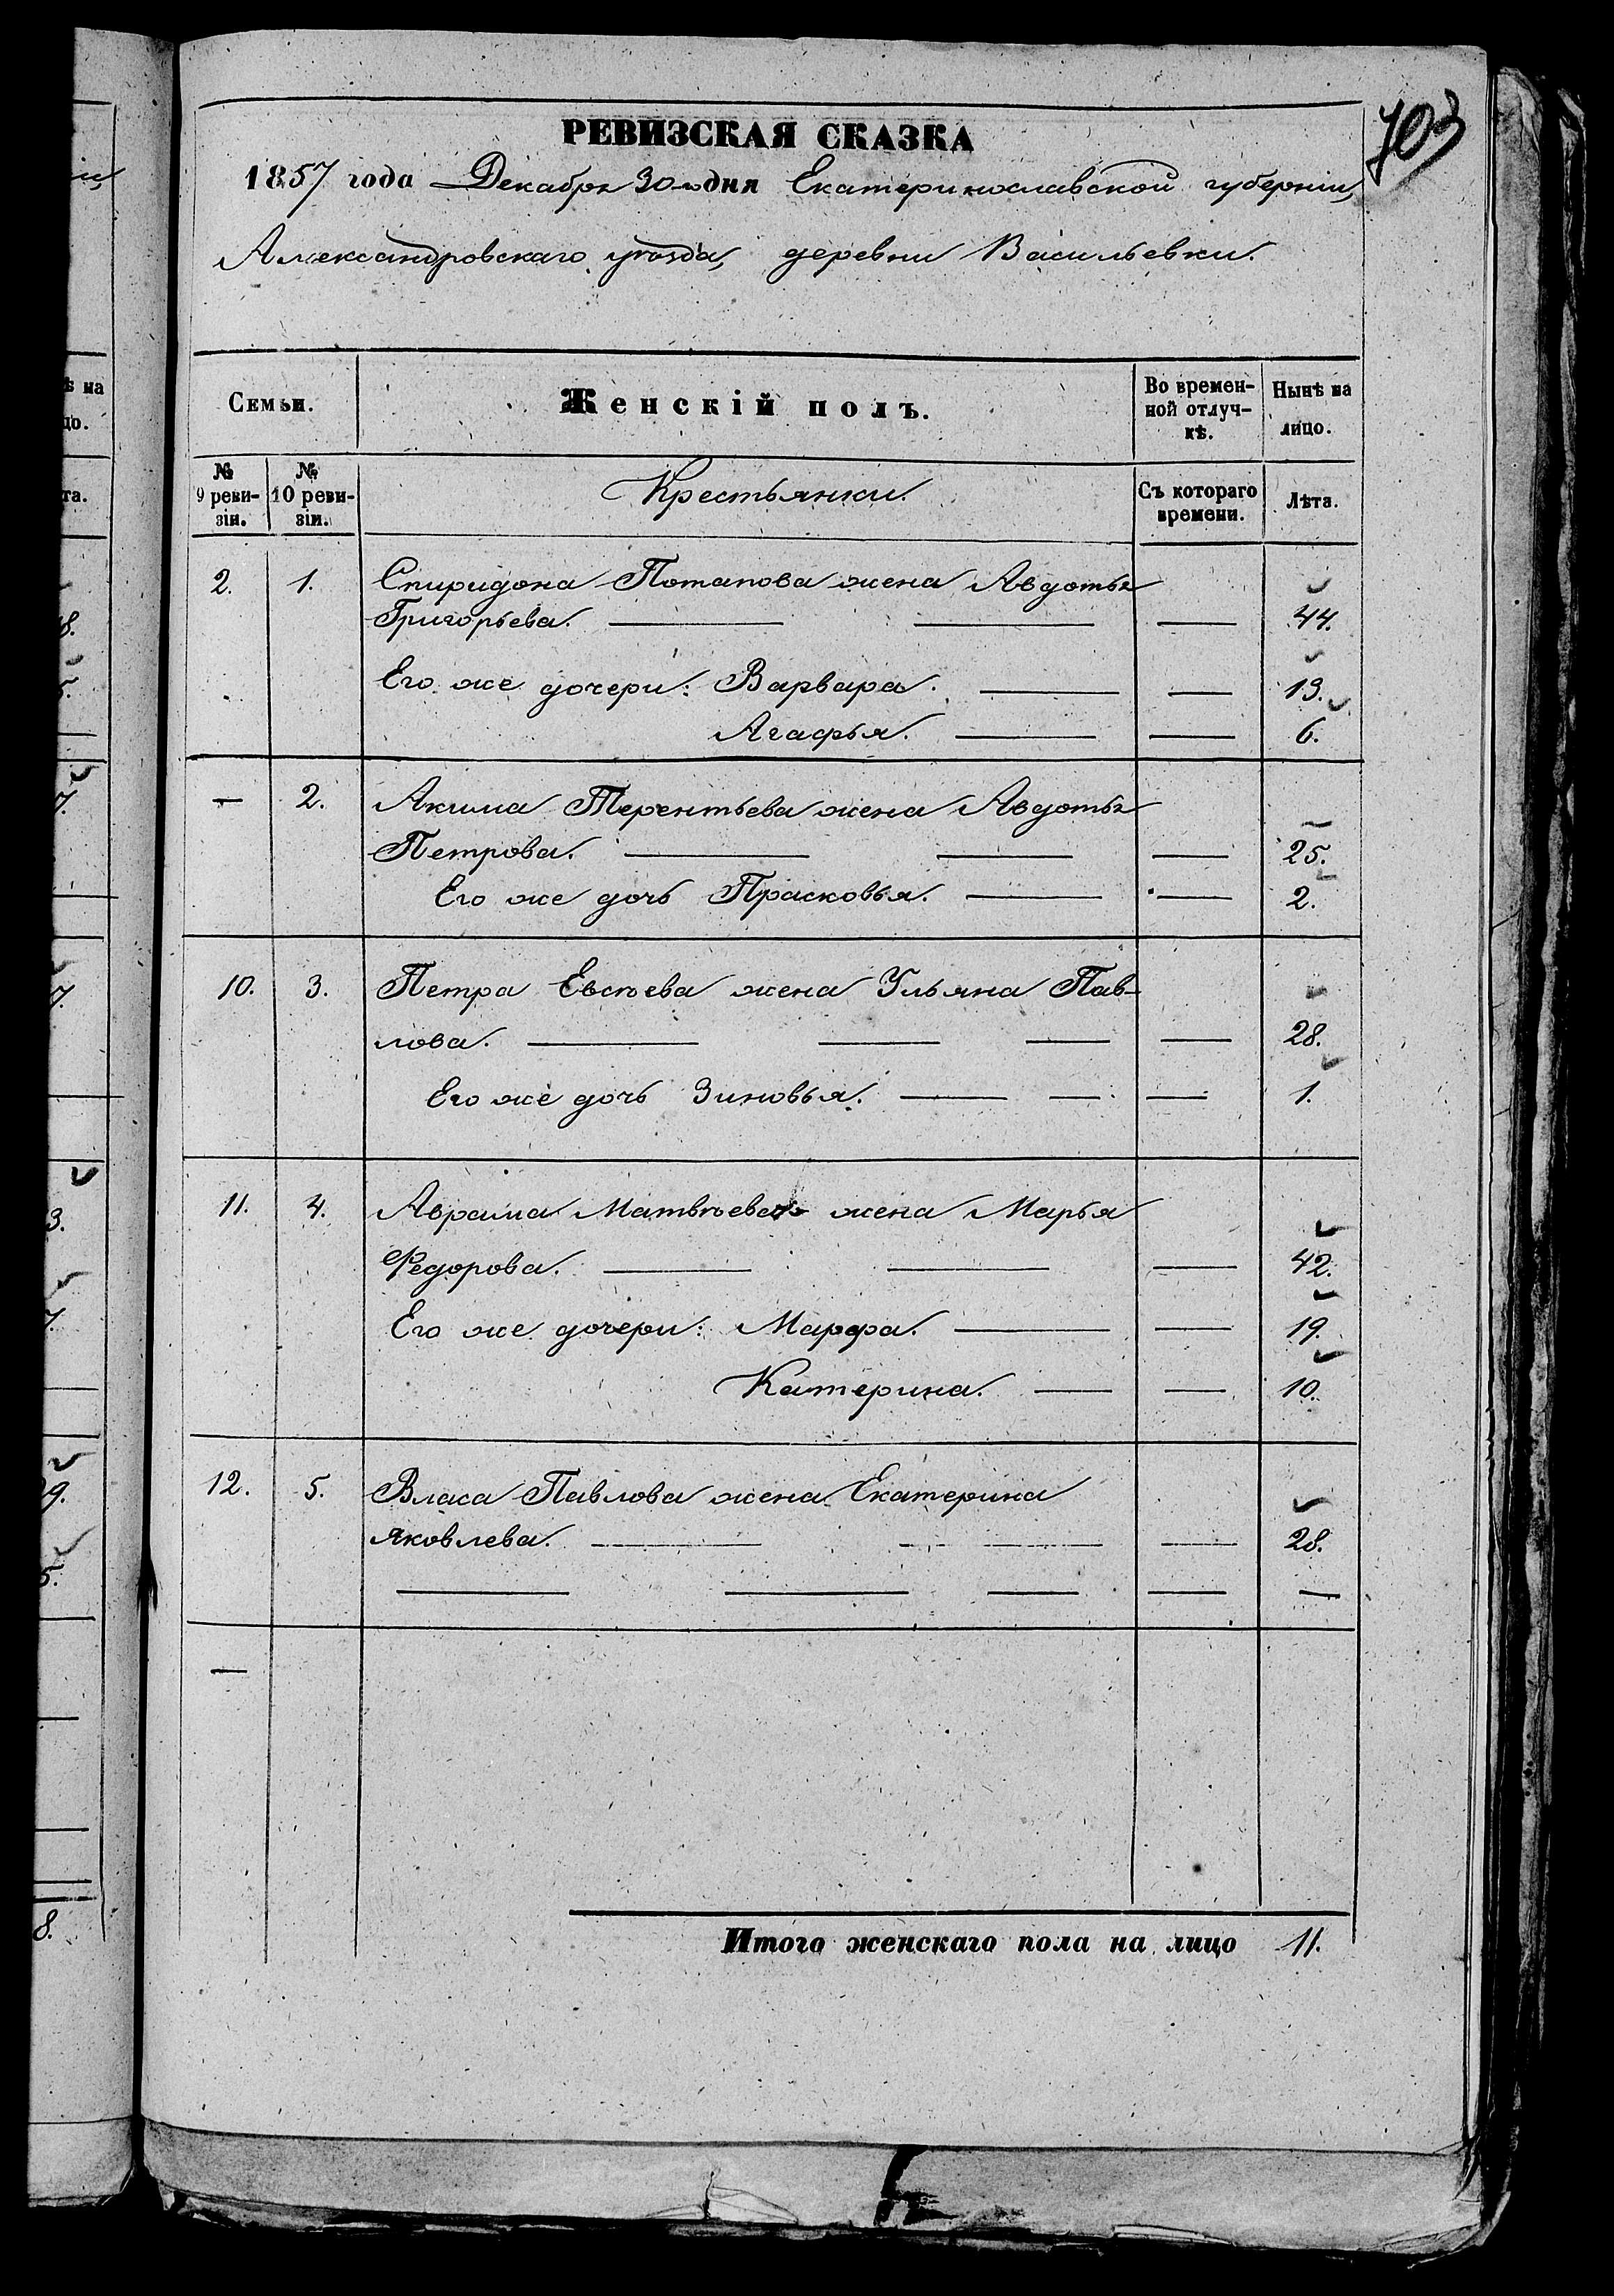 703
РЕВИЗСКАЯ СКАЗКА
1857 года Декабря 30го дня Екатеринославской губерніи,
Александровскаго уѣзда, деревни Васильевки.
Семьи. Женскій полъ. Во времен- Нынѣ на
ной отлуч- лицо.
кѣ.
№ №
9 реви- 10 реви- Крестьянки. Съ котораго Лѣта.
зіи. зіи. времени.
2. 1. Спиридона Потапова жена Авдотья
Григорьева. 44.
Его же дочери: Варвара. 13.
Агафья. 6.
2. Акима Терентьева жена Авдотья
Петрова. 25.
Его же дочь Прасковья. 2.
10. 3. Петра Евсѣева жена Ульяна Пав-
лова. 28.
Его же дочь Зиновья. 1.
11. 4. Авраама Матвѣева жена Марья
Федорова. 42.
Его же дочери: Марфа. 19.
Катерина. 10.
12. 5. Власа Павлова жена Екатерина
Яковлева. 28.
Итого женскаго пола на лицо 11.